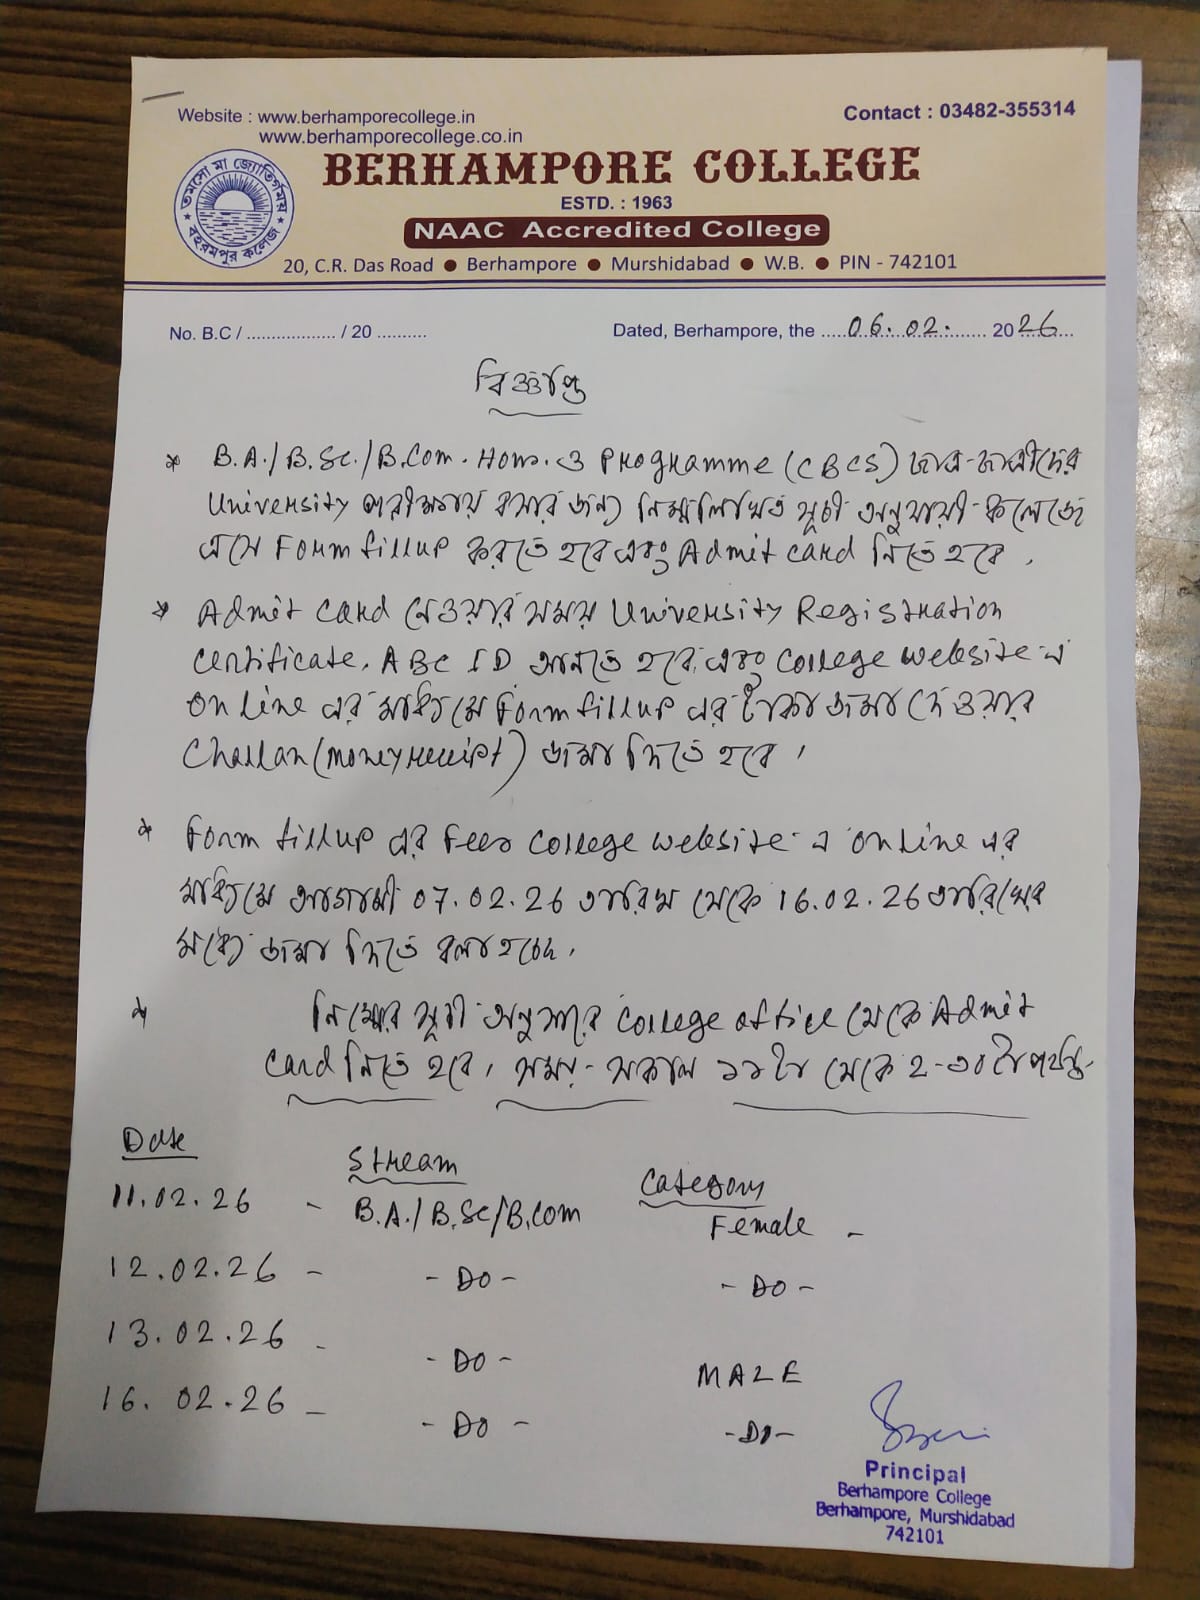 Website : www.berhamporecollege.in
www.berhamporecollege.co.in
Contact : 03482-355314
তমসো মা জ্যোতির্গময়
বহরমপুর কলেজ
BERHAMPORE COLLEGE
ESTD. : 1963
NAAC Accredited College
20, C.R. Das Road ● Berhampore ● Murshidabad ● W.B. ● PIN - 742101
No. B.C / .................. / 20 ..........
Dated, Berhampore, the ..... 06.02. ....... 2026...
বিজ্ঞপ্তি
* B.A./B.Sc./B.Com. Hons. ও Programme (CBCS) ছাত্র-ছাত্রীদের
University পরীক্ষায় বসার জন্য নিম্নলিখিত সূচী অনুযায়ী কলেজে
এসে Form fillup করতে হবে এবং Admit card নিতে হবে .
* Admit card নেওয়ার সময় University Registration
certificate, ABC ID আনতে হবে এবং college website এ
online এর মাধ্যমে Form fillup এর টাকা জমা দেওয়ার
Challan (money receipt) জমা দিতে হবে ।
* Form fillup এর Fees college website এ online এর
মাধ্যমে আগামী 07.02.26 তারিখ থেকে 16.02.26 তারিখের
মধ্যে জমা দিতে বলা হচ্ছে .
* নিম্নের সূচী অনুসারে college office থেকে Admit
card নিতে হবে । সময় - সকাল ১১টা থেকে ২-৩০টা পর্যন্ত
Date Stream Category
11.02.26 - B.A./B.Sc/B.Com Female -
12.02.26 - -DO- -DO-
13.02.26 - -DO- MALE
16.02.26 - -DO- -DO-
Principal
Berhampore College
Berhampore, Murshidabad
742101